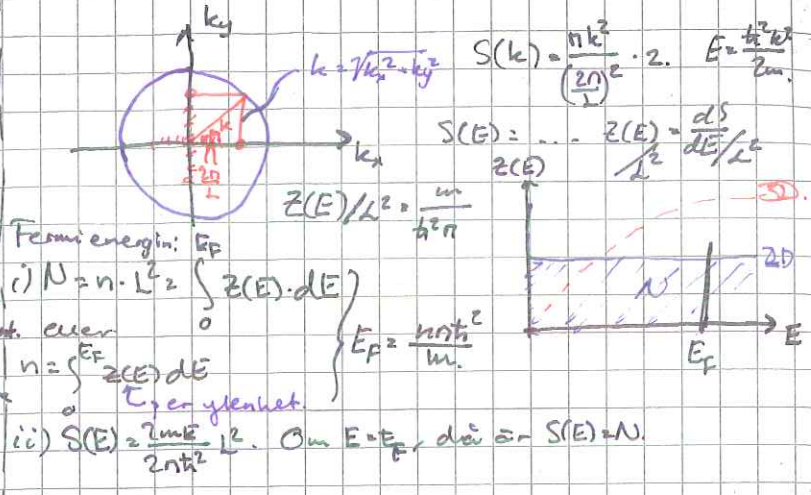 ky
k = √kx² + ky²
S(k) = πk² / (2π/L)² · 2.   E = ħ²k² / 2m.
k
kx
2π/L
S(E) = ....   Z(E)/L² = dS/dE /L²
Z(E)/L² = m / ħ²π
Z(E)
3D.
2D
N
E_F
E
Fermienergin: E_F
i) N = n · L² = ∫₀^{E_F} Z(E) · dE
eller
n = ∫₀^{E_F} Z(E) dE
per ytenhet.
E_F = nπħ² / m.
ii) S(E) = 2mE / 2πħ² L². Om E = E_F, då är S(E) = N.